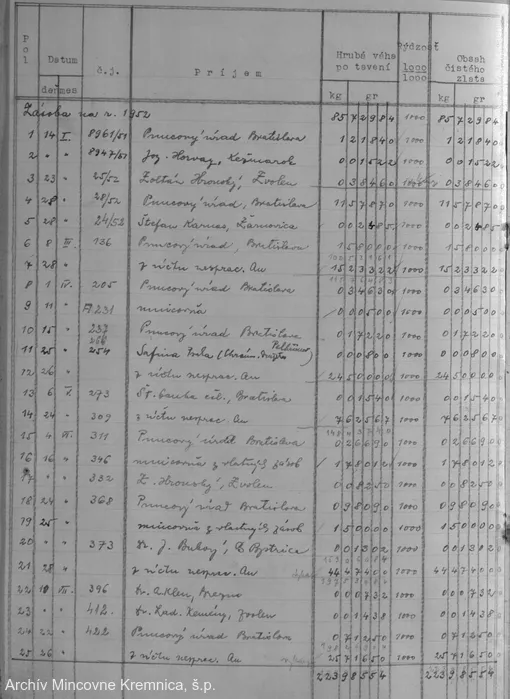 Pol Datum č.j. Príjem Hrubé váha po tavení Rýdzosť 1000/1000 Obsah čistého zlata
dennes kg gr kg gr
Zásoba na r. 1952 85 729 84 1000 85 729 84
1 14 I. 8961/51 Puncový úrad Bratislava 1 218 40 1000 1 218 40
2 " " 8947/51 Joz. Horvay, Kežmarok 0 015 22 1000 0 015 22
3 23 " 25/52 Zoltán Hronský, Zvolen 0 384 60 0 384 60
4 28 " 28/52 Puncový úrad, Bratislava 11 578 70 1000 11 578 70
5 28 " 24/52 Štefan Žarnovica 1000
6 8 III. 136 Puncový úrad, Bratislava 1 580 00 1000 1 580 00
7 28 " z účtu nesprac. Au 15 233 22 1000 15 233 22
8 1 IV. 205 Puncový úrad Bratislava 0 346 30 1000 0 346 30
9 11 " 231 mincovňa 0 005 00 1000 0 005 00
10 15 " 237 Puncový úrad Bratislava 0 172 20 1000 0 172 20
11 25 " 254 0 008 00 1000 0 008 00
12 26 " z účtu nesprac. Au 24 500 00 1000 24 500 00
13 6 V. 273 Bratislava 0 015 40 1000 0 015 40
14 24 " 309 z účtu nesprac. Au 7 625 67 1000 7 625 67
15 4 VI. 311 Puncový úrad Bratislava 0 266 90 1000 0 266 90
16 16 " 346 mincovňa z vlastných zásob 1 780 12 1000 1 780 12
17 " " 332 Z. Hronský, Zvolen 0 082 50 1000 0 082 50
18 24 " 368 Puncový úrad Bratislava 0 980 90 1000 0 980 90
19 25 " mincovňa z vlastných zásob 1 500 00 1000 1 500 00
20 " " 373 Dr. J. B Bystrica 0 013 02 1000 0 013 02
21 28 " z účtu nesprac. Au 44 474 00 1000 44 474 00
22 10 VII. 396 Brezno 0 007 32 1000 0 007 32
23 " " 412 Zvolen 0 014 38 1000 0 014 38
24 22 " 422 Puncový úrad Bratislava 0 712 50 1000 0 712 50
25 26 " z účtu nesprac. Au 25 716 50 1000 25 716 50
223 985 54 223 985 54
Archív Mincovne Kremnica, š.p.